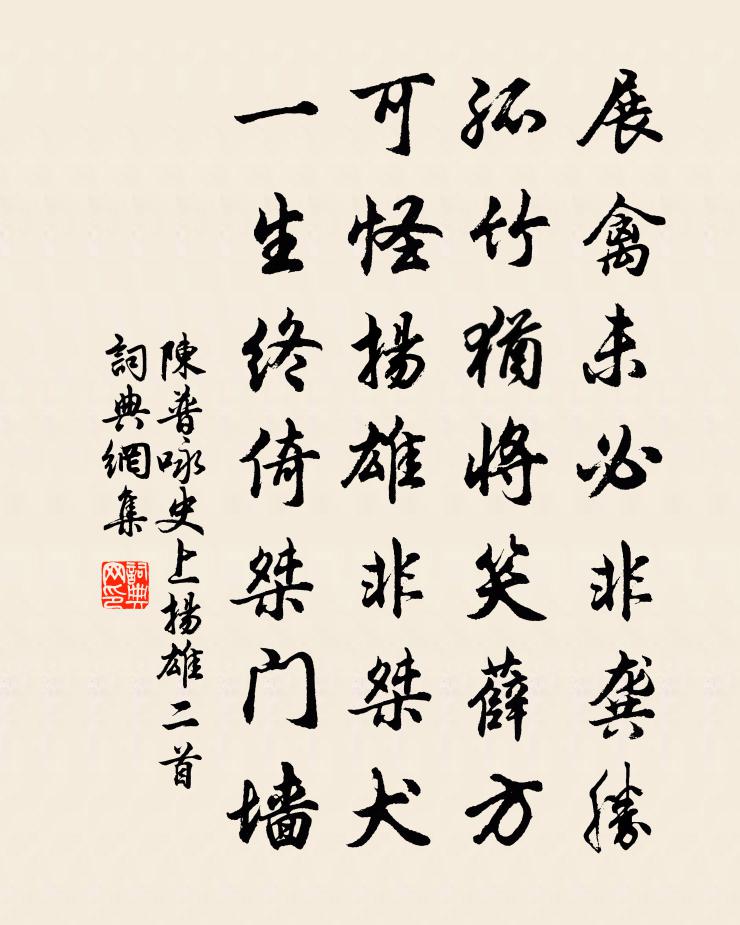 展禽未必非龔勝
孤竹猶將笑薛方
可怪揚雄非桀犬
一生終倚桀門墙
陳普咏史上揚雄二首
詞典網集
詞典网印